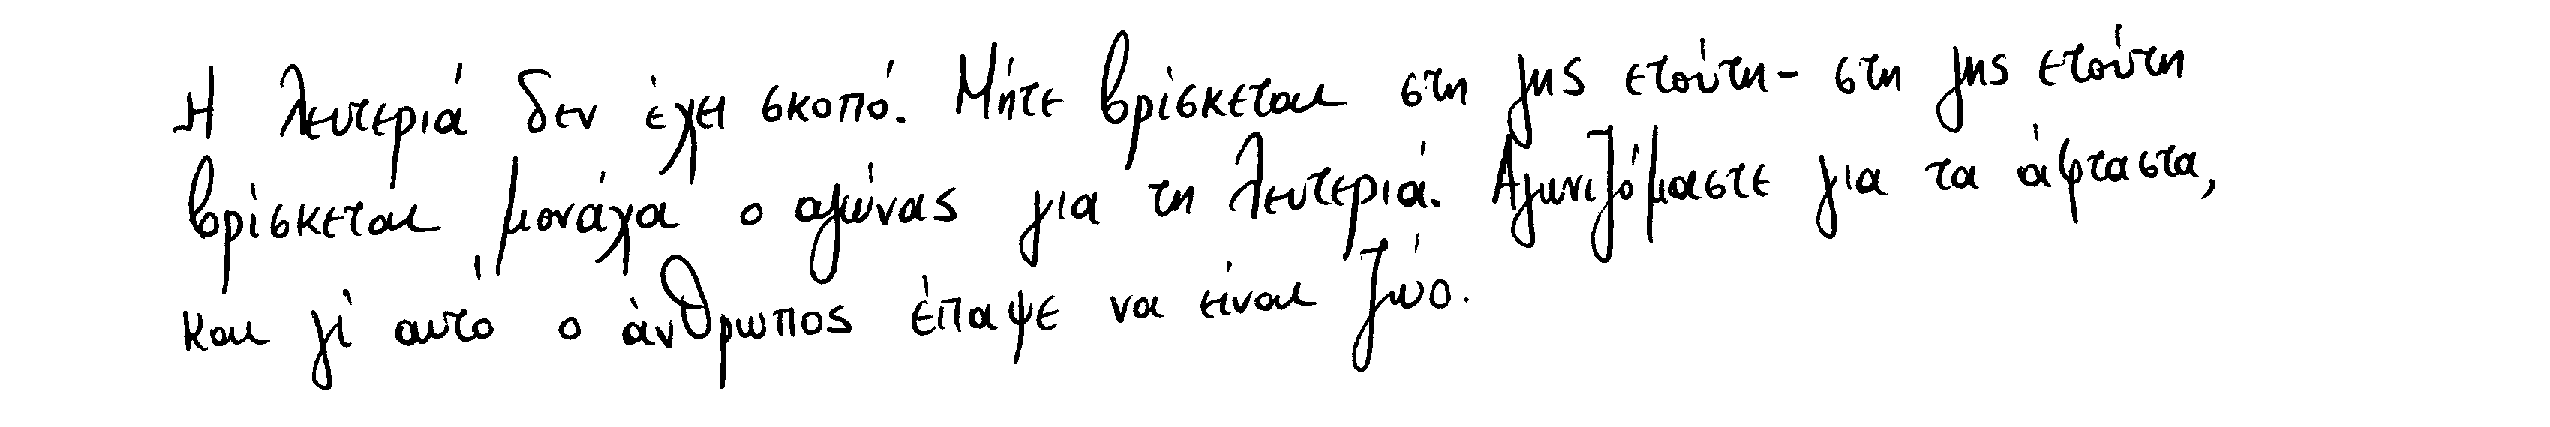 Η λευτεριά δεν έχει σκοπό. Μήτε βρίσκεται στη γης ετούτη - στη γης ετούτη
βρίσκεται μονάχα ο αγώνας για τη λευτεριά. Αγωνιζόμαστε για τα άφταστα,
και γι' αυτό ο άνθρωπος έπαψε να είναι ζώο.